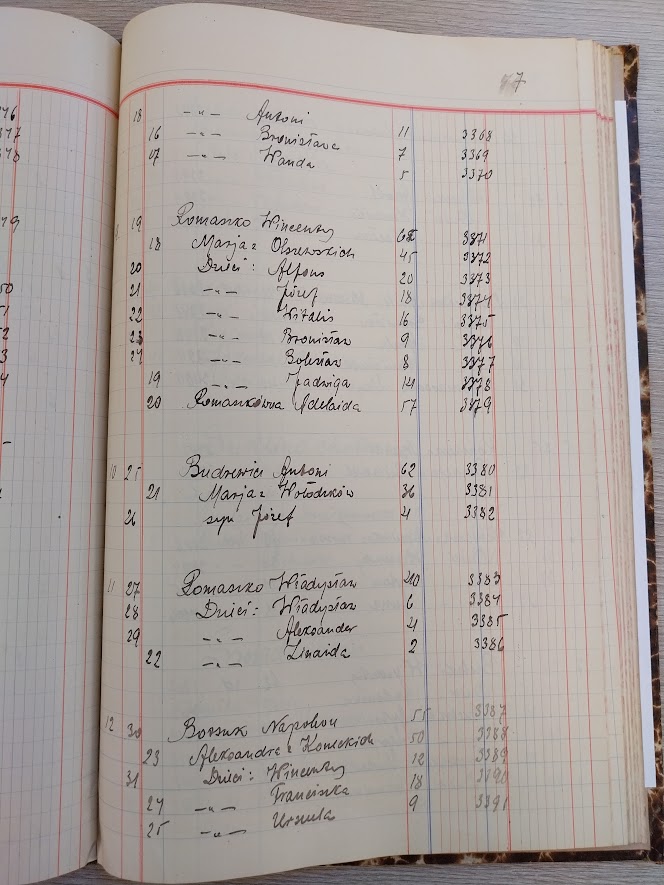 7
18 -"- Antoni 11 3368
16 -"- Bronisława 7 3369
17 -"- Wanda 5 3370
19 Romaszko Wincenty 62 3371
18 Marja z Olszewskich 45 3372
20 Dzieci: Alfons 20 3373
21 -"- Józef 18 3374
22 -"- Witalis 16 3375
23 -"- Bronisław 9 3376
24 -"- Bolesław 8 3377
19 -"- Jadwiga 14 3378
20 Romaszkówna Adelaida 57 3379
10 25 Budrewicz Antoni 62 3380
21 Marja z Wołodzków 36 3381
26 syn Józef 4 3382
11 27 Romaszko Władysław 40 3383
28 Dzieci: Władysław 6 3384
29 -"- Aleksander 4 3385
22 -"- Zinaida 2 3386
12 30 Borsuk Napoleon 55 3387
23 Aleksandra z Koneckich 50 3388
31 Dzieci: Wincenty 12 3389
24 -"- Franciszka 18 3390
25 -"- Urszula 9 3391